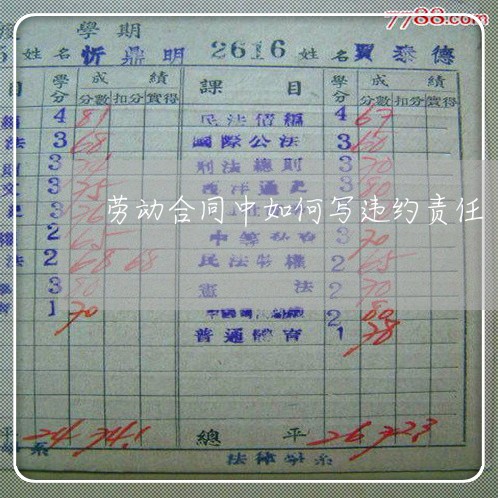 7788.com
學期
5 姓名 忻鼎明 2616 姓名 賈泰德
目 學分 成績 課目 學分 成績
分數 扣分 實得 分數 扣分 實得
4 81 民法債編 4 67
法 3 68 國際公法 3 60
3 刑法總則 3 70
3 75 西洋通史 3 80
劳动合同中如何写违约责任
2 65 3 70
法 2 68 68 民法物權 2 65
3 80 憲法 2 70
1 70 2 80
普通體育 1 78
平 24 74.1 總平 26 72.3
系 法律學系